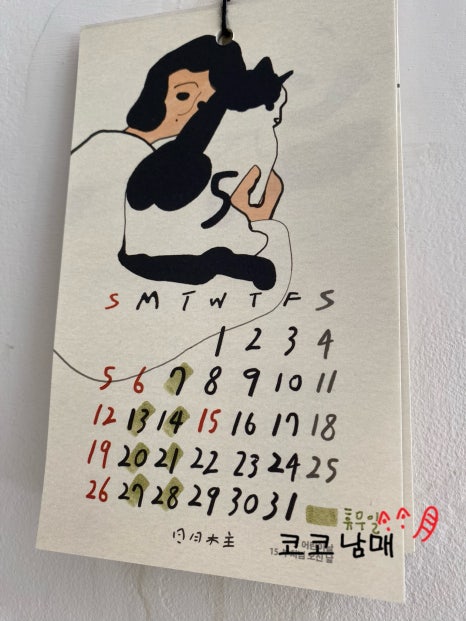 5
S M T W T F S
1 2 3 4
5 6 7 8 9 10 11
12 13 14 15 16 17 18
19 20 21 22 23 24 25
26 27 28 29 30 31
휴무일
코코남매